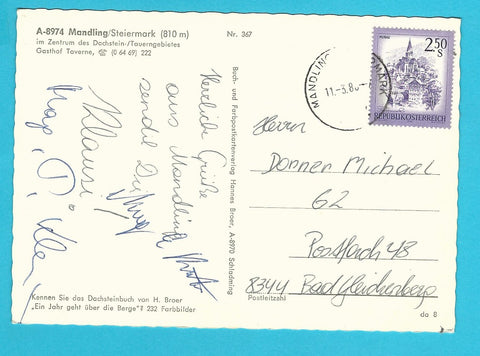 A-8974 Mandling/Steiermark (810 m)
im Zentrum des Dachstein-/Tauerngebietes
Gasthof Taverne, ☎ (0 64 69) 222
Nr. 367
Herzliche Grüße
aus Mandling
sendet Dir
Klausi
Buch- und Farbpostkartenverlag Hannes Broer, A-8970 Schladming
MANDLING
11.-3.8
2.50
S
REPUBLIK ÖSTERREICH
Herrn
Donner Michael
62
Postfach 48
8344 Bad Gleichenberg
Postleitzahl
Kennen Sie das Dachsteinbuch von H. Broer
„Ein Jahr geht über die Berge"? 232 Farbbilder
da 8